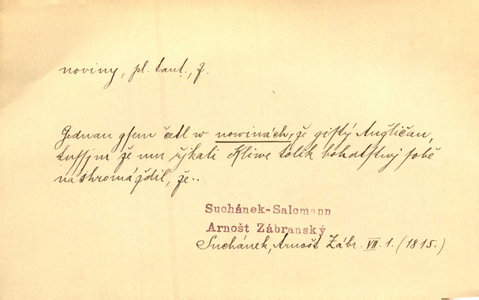 noviny, pl. tant., f.
Gednau gsem četl w nowinách, že gistý Angličan,
tussjm že mu řjkali Kliwe tolik bohatstwj sobě
nashromáždil, že..
Suchánek-Salomann
Arnošt Zábranský
Suchánek, Arnošt Zábr. VII. 1. (1815.)